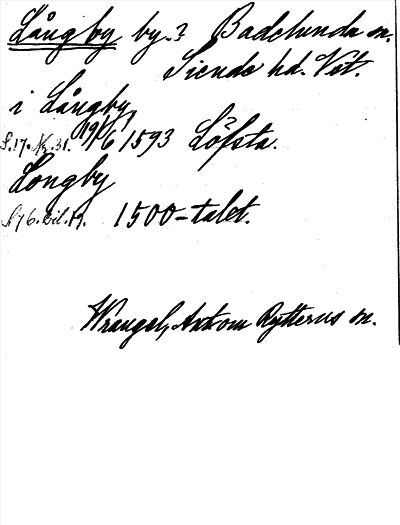 Långby by.3 Badelunda sn.
Siende hd. Vst.
i Långby
S.17. Nr.31. 19/6 1593 Löfsta.
Longby
1500-talet.
Wrangel, Ank om Rytterns sn.